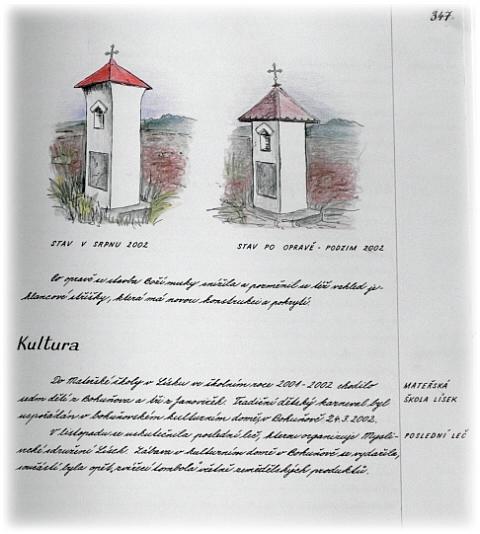 347.
STAV V SRPNU 2002
STAV PO OPRAVĚ - PODZIM 2002
Po opravě se stavba Boží muky snížila a pozměnil se též vzhled je-
hlancové stříšky, která má novou konstrukci a pokrytí.
Kultura
Do Mateřské školy v Lísku ve školním roce 2001 - 2002 chodilo
sedm dětí z Bohuňova a tři z Janoviček. Tradiční dětský karneval byl
uspořádán v bohuňovském kulturním domě v Bohuňově 24.3.2002.
MATEŘSKÁ
ŠKOLA LÍSEK
V listopadu se uskutečnila poslední leč, kterou organizuje Mysli-
vecké sdružení Lísek. Zábava v kulturním domě v Bohuňově se vydařila,
součástí byla opět zvířecí tombola včetně zemědělských produktů.
POSLEDNÍ LEČ